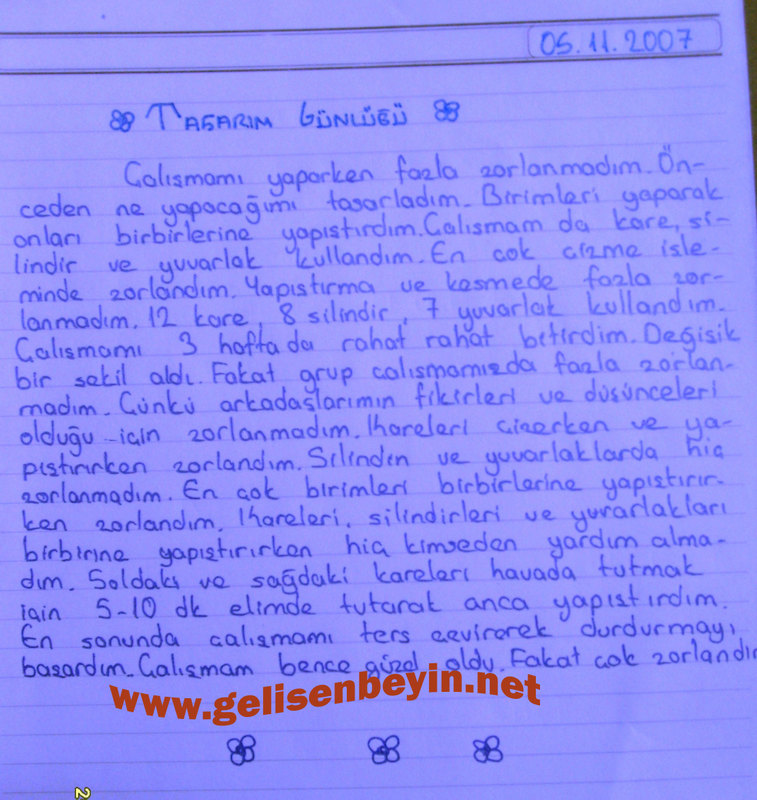 05.11.2007
TASARIM GÜNLÜĞÜ
Calısmamı yaparken fazla zorlanmadım. Ön-
ceden ne yapacağımı tasarladım. Birimleri yaparak
onları birbirlerine yapıstırdım. Calısmam da kare, si-
lindir ve yuvarlak kullandım. En cok cizme isle-
minde zorlandım. Yapıstırma ve kesmede fazla zor-
lanmadım. 12 kare, 8 silindir, 7 yuvarlak kullandım.
Calısmamı 3 haftada rahat rahat bitirdim. Değisik
bir sekil aldı. Fakat grup calısmamızda fazla zorlan-
madım. Cünkü arkadaşlarımın fikirleri ve düsünceleri
olduğu için zorlanmadım. Kareleri cizerken ve ya-
pıstırırken zorlandım. Silindin ve yuvarlaklarda hiç
zorlanmadım. En çok birimleri birbirlerine yapıstırır-
ken zorlandım. Kareleri, silindirleri ve yuvarlakları
birbirine yapıstırırken hiç kimseden yardım alma-
dım. Soldaki ve sağdaki kareleri havada tutmak
için 5-10 dk elimde tutarak anca yapıstırdım.
En sonunda calısmamı ters çevirerek durdurmayı
basardım. Calısmam bence güzel oldu. Fakat çok zorlandı
www.gelisenbeyin.net
2